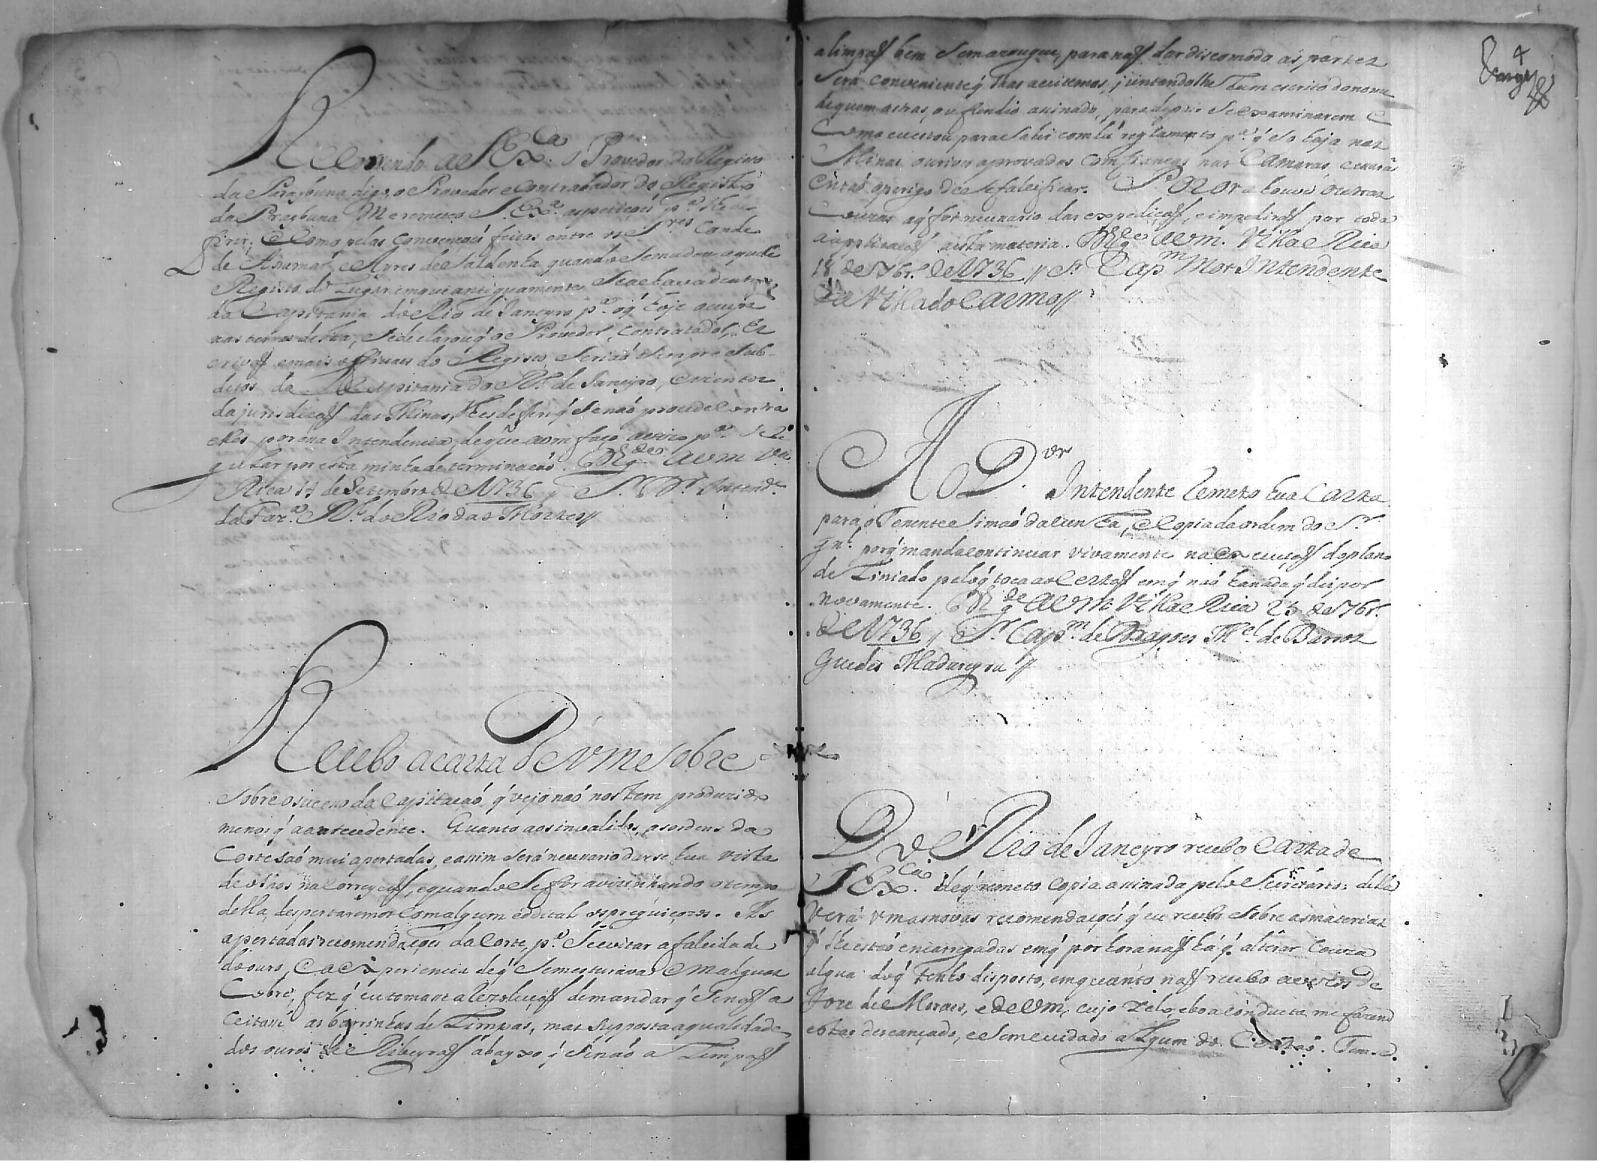 Recorrendo a S Ex.ca o Provedor do Registo
da Paraibuna digo, o Provedor e Contratador do Registo
da Paraibuna
e Como pelas Convenções feitas entre os S.res Conde
de Assumar, e Ayres de Saldanha quando se mudou aquele
Registo do Lugar em que antiguamente se achava dentro
da Capitania do Rio de Janeyro p.a o q' hoje occupa
nas terras desta, se declarou q' o Provedor, Contratador, Es
crivaõ e mais officiaes do Registo seriaõ sempre sub-
ditos da Capitania do R.o de Janeyro, e izentos
da jurisdicaõ das Minas, q' se naõ procede contra
elles por essa Intendencia, de que a vm faço avizo p.a se re
gular por esta minha determinacaõ. D.s g.de a vm V.a
Rica 17 de Setembro de 1736 // S.r D.r Intend.e
da Faz.a R.l do Rio das Mortes //
Recebo a carta de vm sobre
sobre o sucesso da Capitacaõ, q' vejo naõ nos tem produzido
menos q' a antecedente. Quanto aos invalidos, as ordens da
Corte saõ mui apertadas, e assim será necessario darse hua vista
de olhos na Correycaõ, e quando se for avizinhando o tempo
della, despertaremos com algum edital os preguicozos. As
apertadas recomendações da Corte p.a se evitar a falcidade
do ouro, e a experiencia de q' se misturava mal algum
Cobre, fez q' eu tomasse a rezolucaõ de mandar q' se naõ a
ceitaõ as borrinhas de Limpas, mas supposta a qualidade
dos ouros de Ribeyraõ abayxo, q' se naõ a Limpaõ
alimpaõ bem sem azougue, para naõ dar discomodo ás partes
será conveniente q' lhas aceitemos, juntandolhe hum escrito do nome
de quem as tras, ou fundio assinado, para depois se examinarem
p.a q' só haja nas
Minas ourives aprovados com fianças nas Camaras, e cessará
entaõ o perigo de se falcificar. Por ora houve outras
Couzas a q' foi necessario dar expediçaõ, e impediraõ por toda
a applicacaõ a esta materia. D.s g.de a vm. Villa Rica
18 de 7br.o de 1736 // S.r Cap.m Mor Intendente
da Villa do Carmo //
Ao D.or
Intendente remeto hua Carta
para o Tenente Simaõ da Cunha, e Copia da ordem do S.r
G.n porq' manda continuar vivamente na execuçaõ do plano
de Liniado pelo q' toca ao Certaõ em q' naõ ha nada q' dispor
novamente. D.s g.de a vm Villa Rica 23 de 7br.o
de 1736 // S.r Cap.m de Dragoes M.el de Barros
Guedes Madureyra //
Do Rio de Janeyro recebo Carta de
S Ex.ca de q' remeto copia assinada pelo Secretario: della
verá vm as novas recomendações q' eu recebo sobre as materias
q' lhe estaõ encarregadas em q' por hora naõ há q' alterar couza
algua do q' tenho disposto, em quanto naõ recebo avizos de
Joze de Moraes, e de vm, cujo zelo, e boa conducta me fazem
estar descançado, e sem cuidado algum do Certaõ. Tem.e